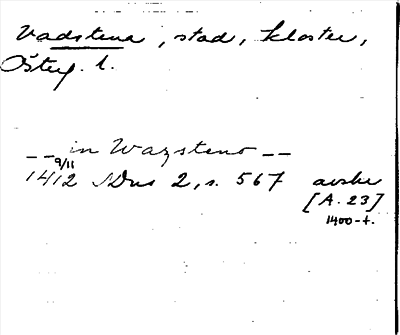 Vadstena, stad, kloster,
Österg. l.
-- in Wazsteno --
1412 9/11 SDns 2, s. 567 avskr
[A. 23]
1400-t.